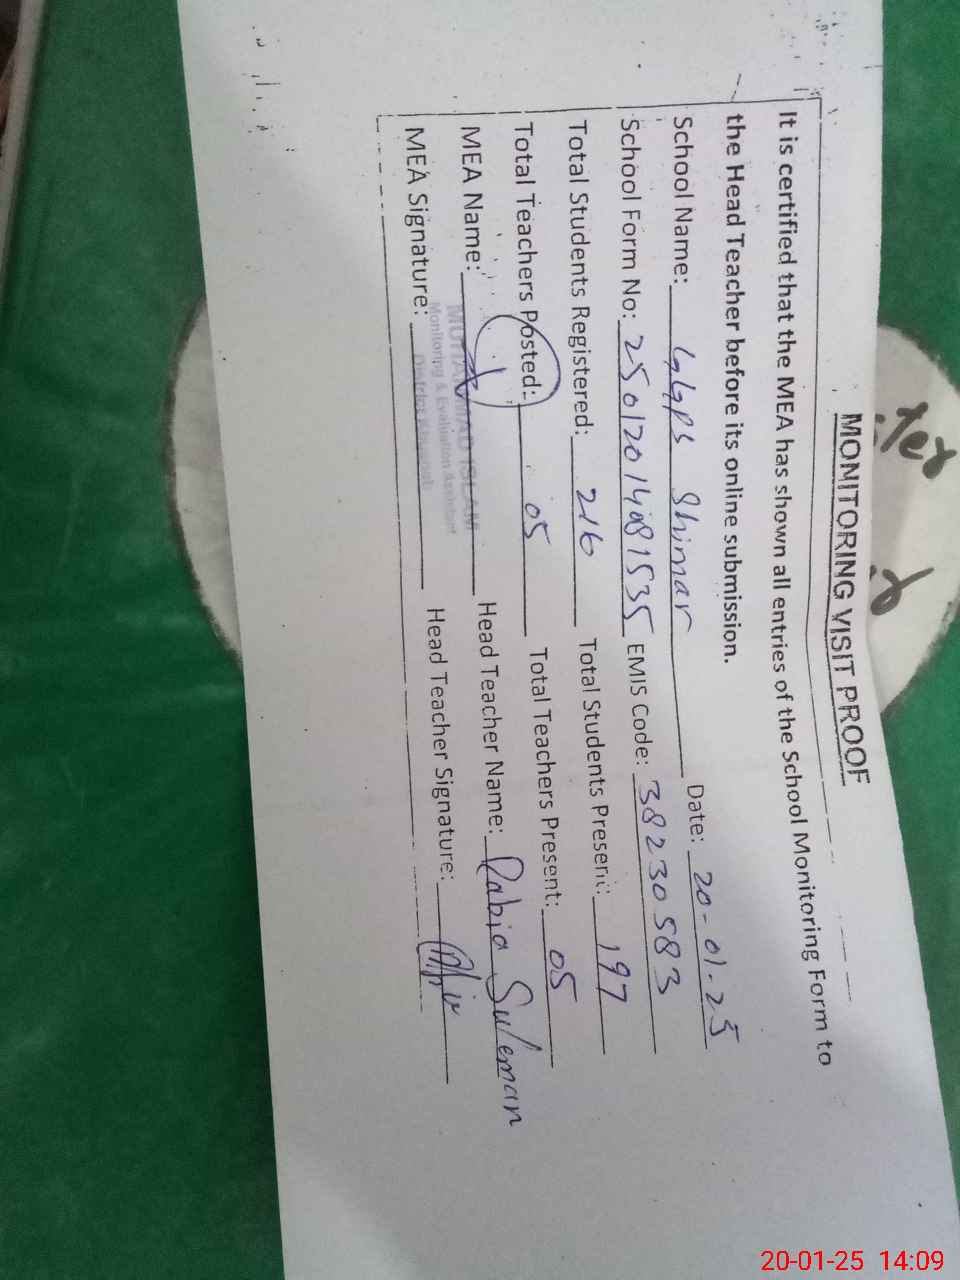 MONITORING VISIT PROOF
It is certified that the MEA has shown all entries of the School Monitoring Form to
the Head Teacher before its online submission.
School Name: GGPS Shimar Date: 20-01-25
School Form No: 2501201481535 EMIS Code: 38230583
Total Students Registered: 216 Total Students Present: 197
Total Teachers Posted: 05 Total Teachers Present: 05
MEA Name: MUHAMMAD ISLAM Head Teacher Name: Rabia Suleman
Monitoring & Evaluation Assistant
District Khushab
MEA Signature: Head Teacher Signature:
20-01-25 14:09